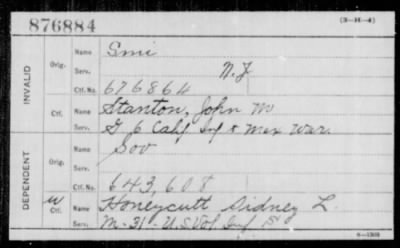 876884
(3-H-4)
INVALID
Orig.
Name Smi
Serv. N.J.
Ctf. No. 676864
Ctf.
Name Stanton, John M
Serv. G 6 Calif Inf & Mex War.
DEPENDENT
Orig.
Name Sov
Serv.
Ctf. No. 643,608
W
Ctf.
Name Honeycutt Sidney L.
Serv. M-31-U.S. Vol Inf
6-1308